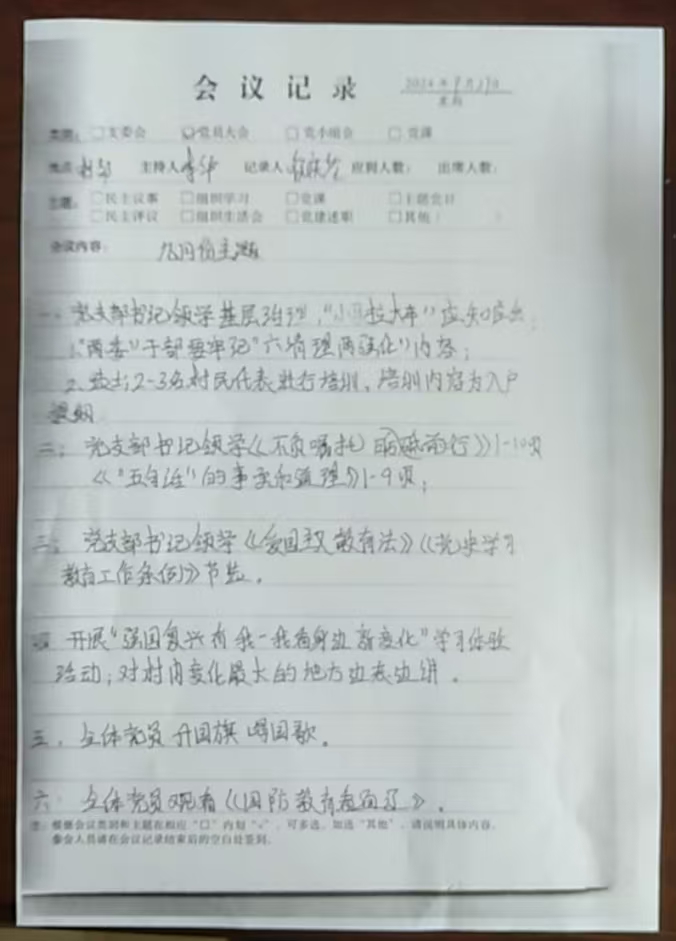 会议记录
2024年9月27日
类别：□支委会 □党员大会 □党小组会 □党课
地点： 村部 主持人 李华 记录人 应到人数： 出席人数：
主题：□民主议事 □组织学习 □党课 □主题党日
□民主评议 □组织生活会 □党建述职 □其他（ ）
会议内容： 九月份主题
一、党支部书记领学基层治理，"小马拉大车"应知应会；
1."两委"干部要牢记 内容；
2、 2-3名村民代表进行培训、培训内容为入户
二、党支部书记领学《不负嘱托 砥砺前行》1-10页
《"五句话"的事实和道理》1-9页；
三、党支部书记领学《爱国主义教育法》《党史学习
教育工作条例》节选。
四 开展"强国复兴有我—我看身边新变化"学习体验
活动；对村内变化最大的地方边走边讲。
五、全体党员升国旗唱国歌。
六 全体党员观看《国防教育 》。
注：根据会议类别和主题在相应"□"内划"√"，可多选。如选"其他"，请说明具体内容。
参会人员请在会议记录结束后的空白处签到。